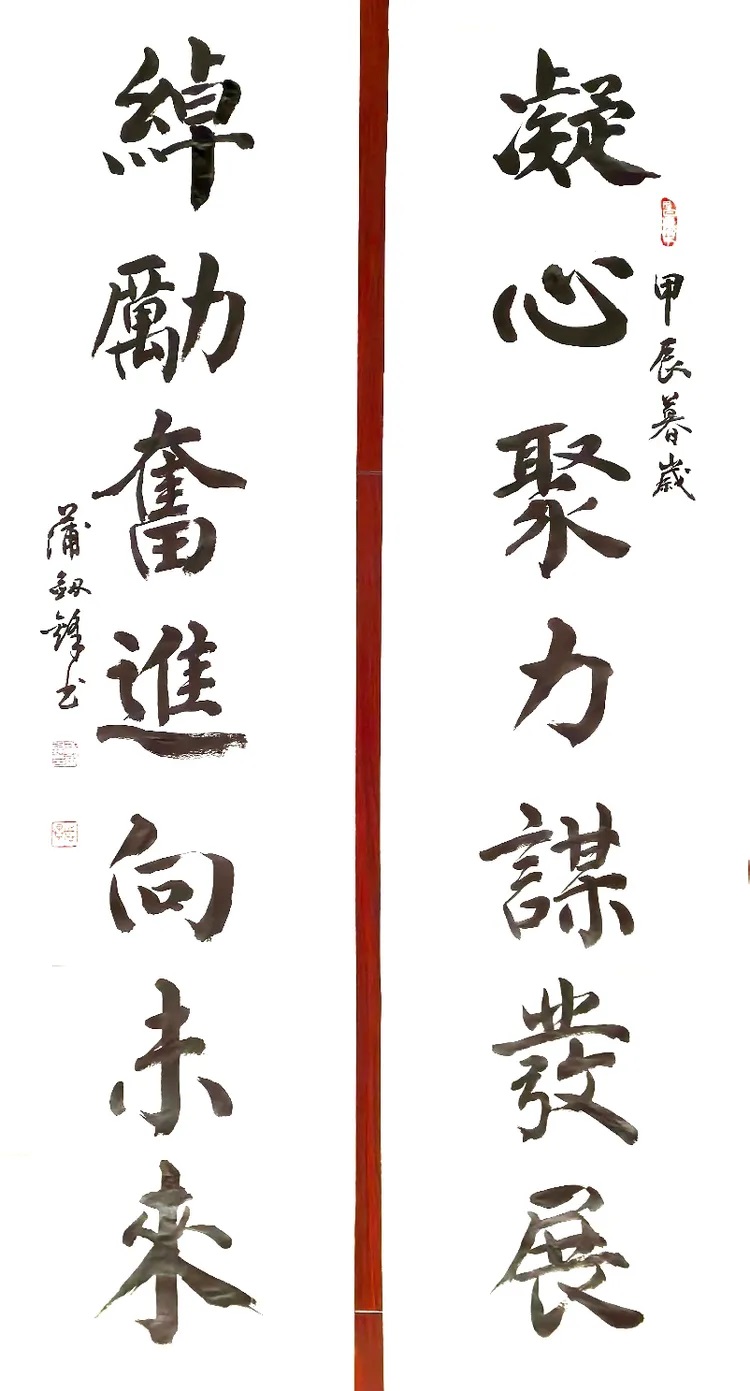 凝心聚力謀發展
甲辰暮歲
綽勵奮進向未來
蒲釼鋒书